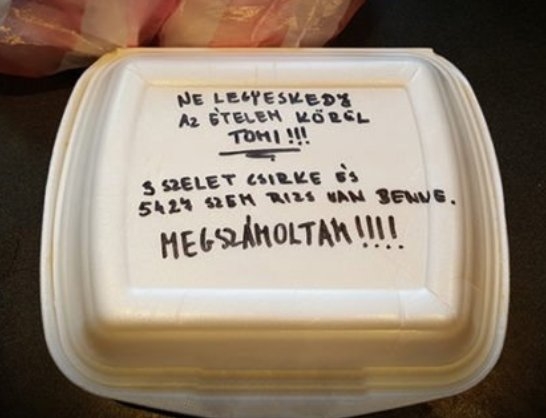 NE LEGYESKEDJ
AZ ÉTELEM KÖRÜL
TOMI!!!
3 SZELET CSIRKE ÉS
5427 SZEM RIZS VAN BENNE.
MEGSZÁMOLTAM!!!!